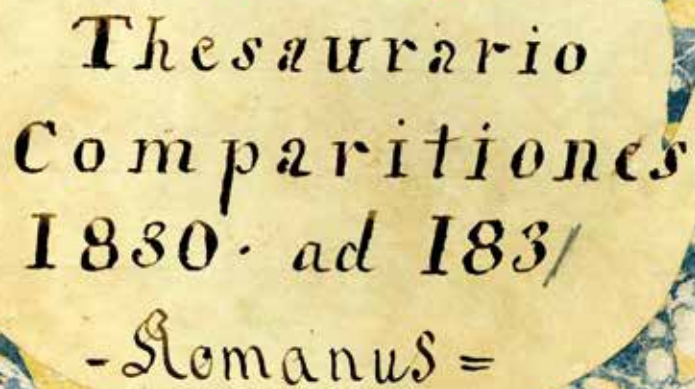 Thesaurario
Comparitiones
1830. ad 183/
- Romanus =